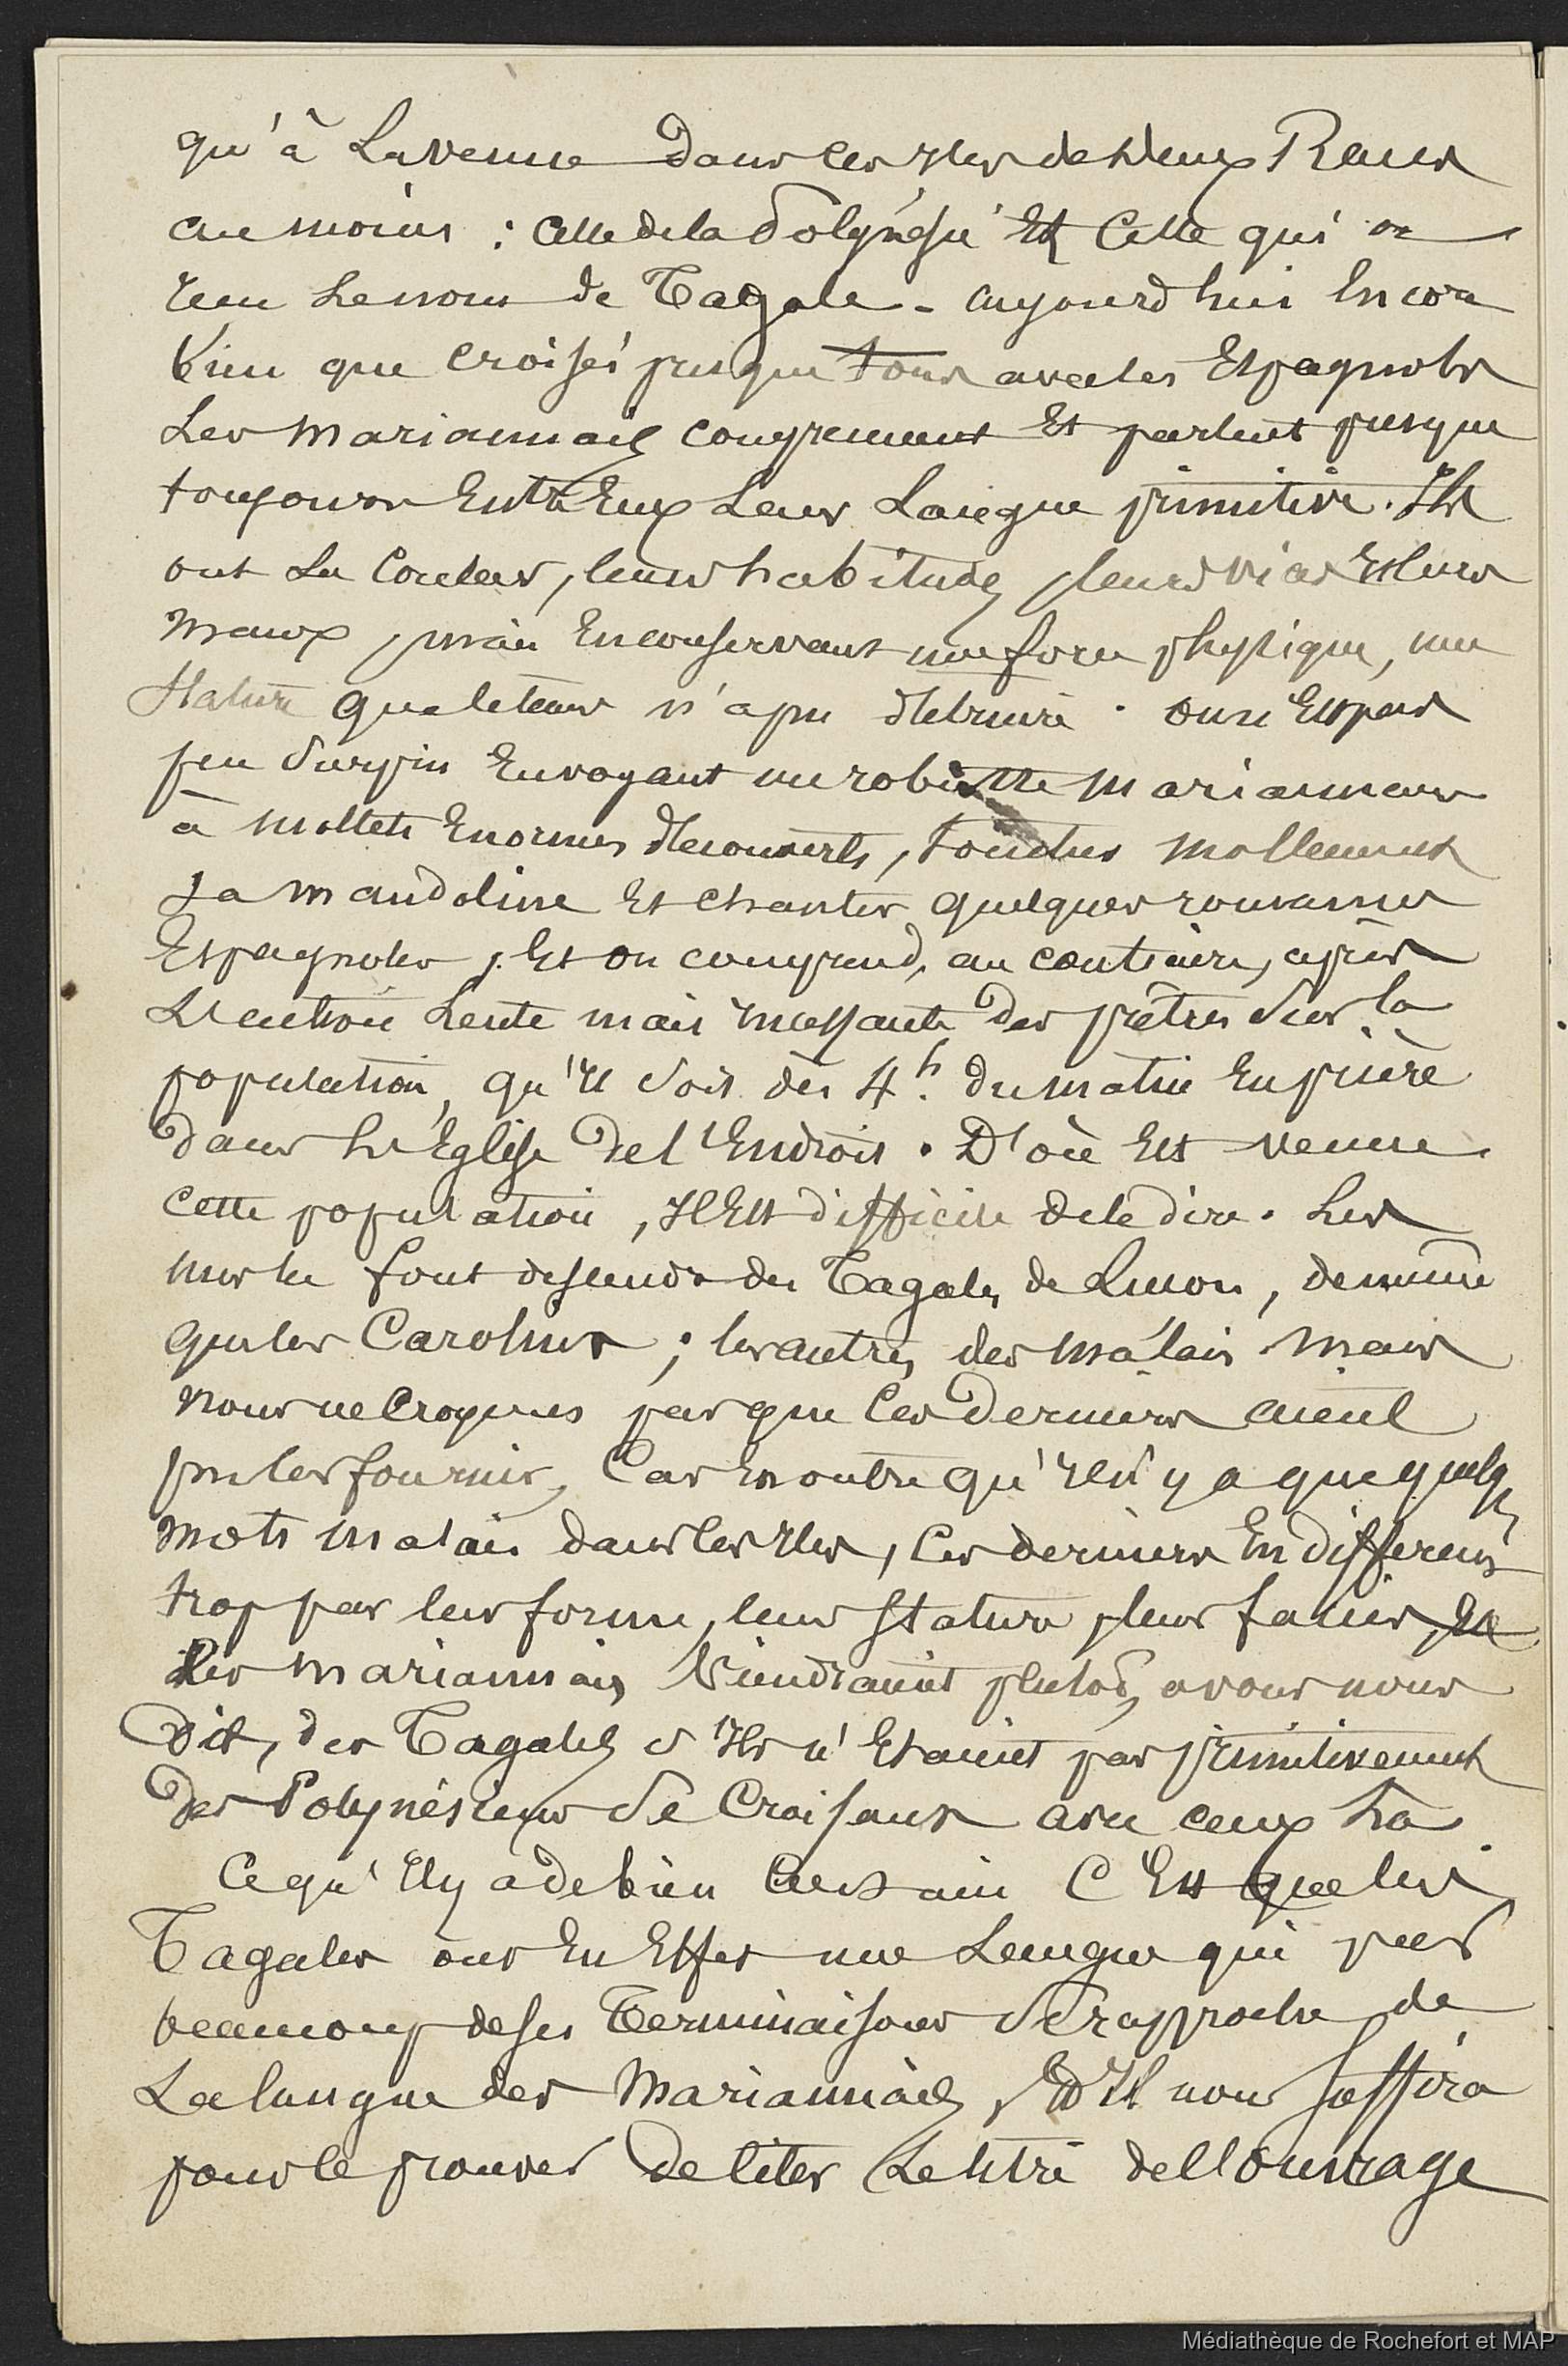 qu'à La venue dans ces Iles de deux Races
au moins : celle de la Polynésie Et Celle qui a
reçu Le nom de Tagale - aujourd'hui Encore
bien que croisés presque tous avec les Espagnols
Les Mariannais comprennent Et parlent presque
toujours Entr'Eux Leur Langue primitive. Ils
ont La Couleur, leurs habitudes, leurs vices Et leurs
maux, mais En conservant une force physique, une
Stature que le temps n'a pu détruire. on n'Est pas
peu Surpris En voyant un robuste Mariannais
à mollets Enormes découverts, toucher mollement
La mandoline Et chanter quelques romances
Espagnoles, Et on comprend, au contraire, après
L'action Lente mais incessante des prêtres Sur la
population, qu'Il Soit dès 4h. du matin En prière
dans L'Eglise de l'Endroit. D'où Est venue
cette population, Il Est difficile de le dire. Les
uns la font descendre des Tagales de Luçon, de même
que les Carolins ; les autres, des Malais. Mais
nous ne Croyons pas que Ces Derniers aient
pu les fournir, Car En outre qu'Il n'y a que quelqs
mots malais dans les Iles, Ces derniers En diffèrent
trop par leur forme, leur Stature, leur faciès, Et
Les Mariannais Viendraient plutôt, avons nous
Dit, des Tagales s'Ils n'Etaient pas primitivement
Des Polynésiens Se Croisant avec ceux là.
Ce qu'Il y a de bien Certain C'Est que les
Tagales ont En Effet une Langue qui par
beaucoup de ses Terminaisons Se rapproche de
La langue des Mariannais, Et Il nous Suffira
pour le prouver De citer Le titre de l'ouvrage
Médiathèque de Rochefort et MAP